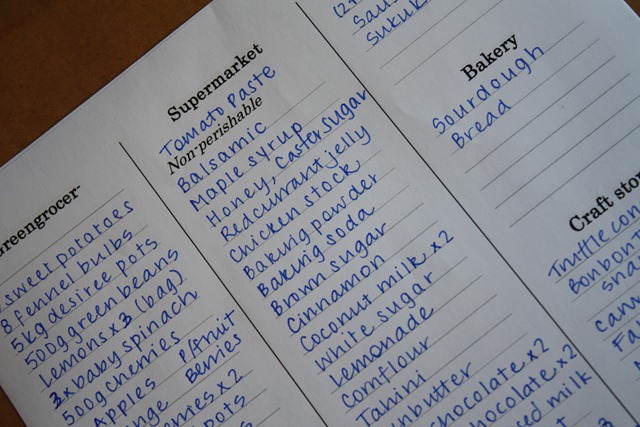 Greengrocer
sweet potatoes
8 fennel bulbs
5kg desiree pots
500g green beans
Lemons x 3 (bag)
3x baby spinach
500g cherries
Apples P/fruit
Berries
x2
Supermarket
Tomato Paste
Non-perishable
Balsamic
Maple syrup
Honey, Caster sugar
Redcurrant jelly
Chicken stock
Baking powder
Baking soda
Brown sugar
Cinnamon
Coconut milk x2
White sugar
Lemonade
Cornflour
Tahini
chocolate x2
chocolate x2
milk
Bakery
Sourdough
Bread
Craft
Truffle